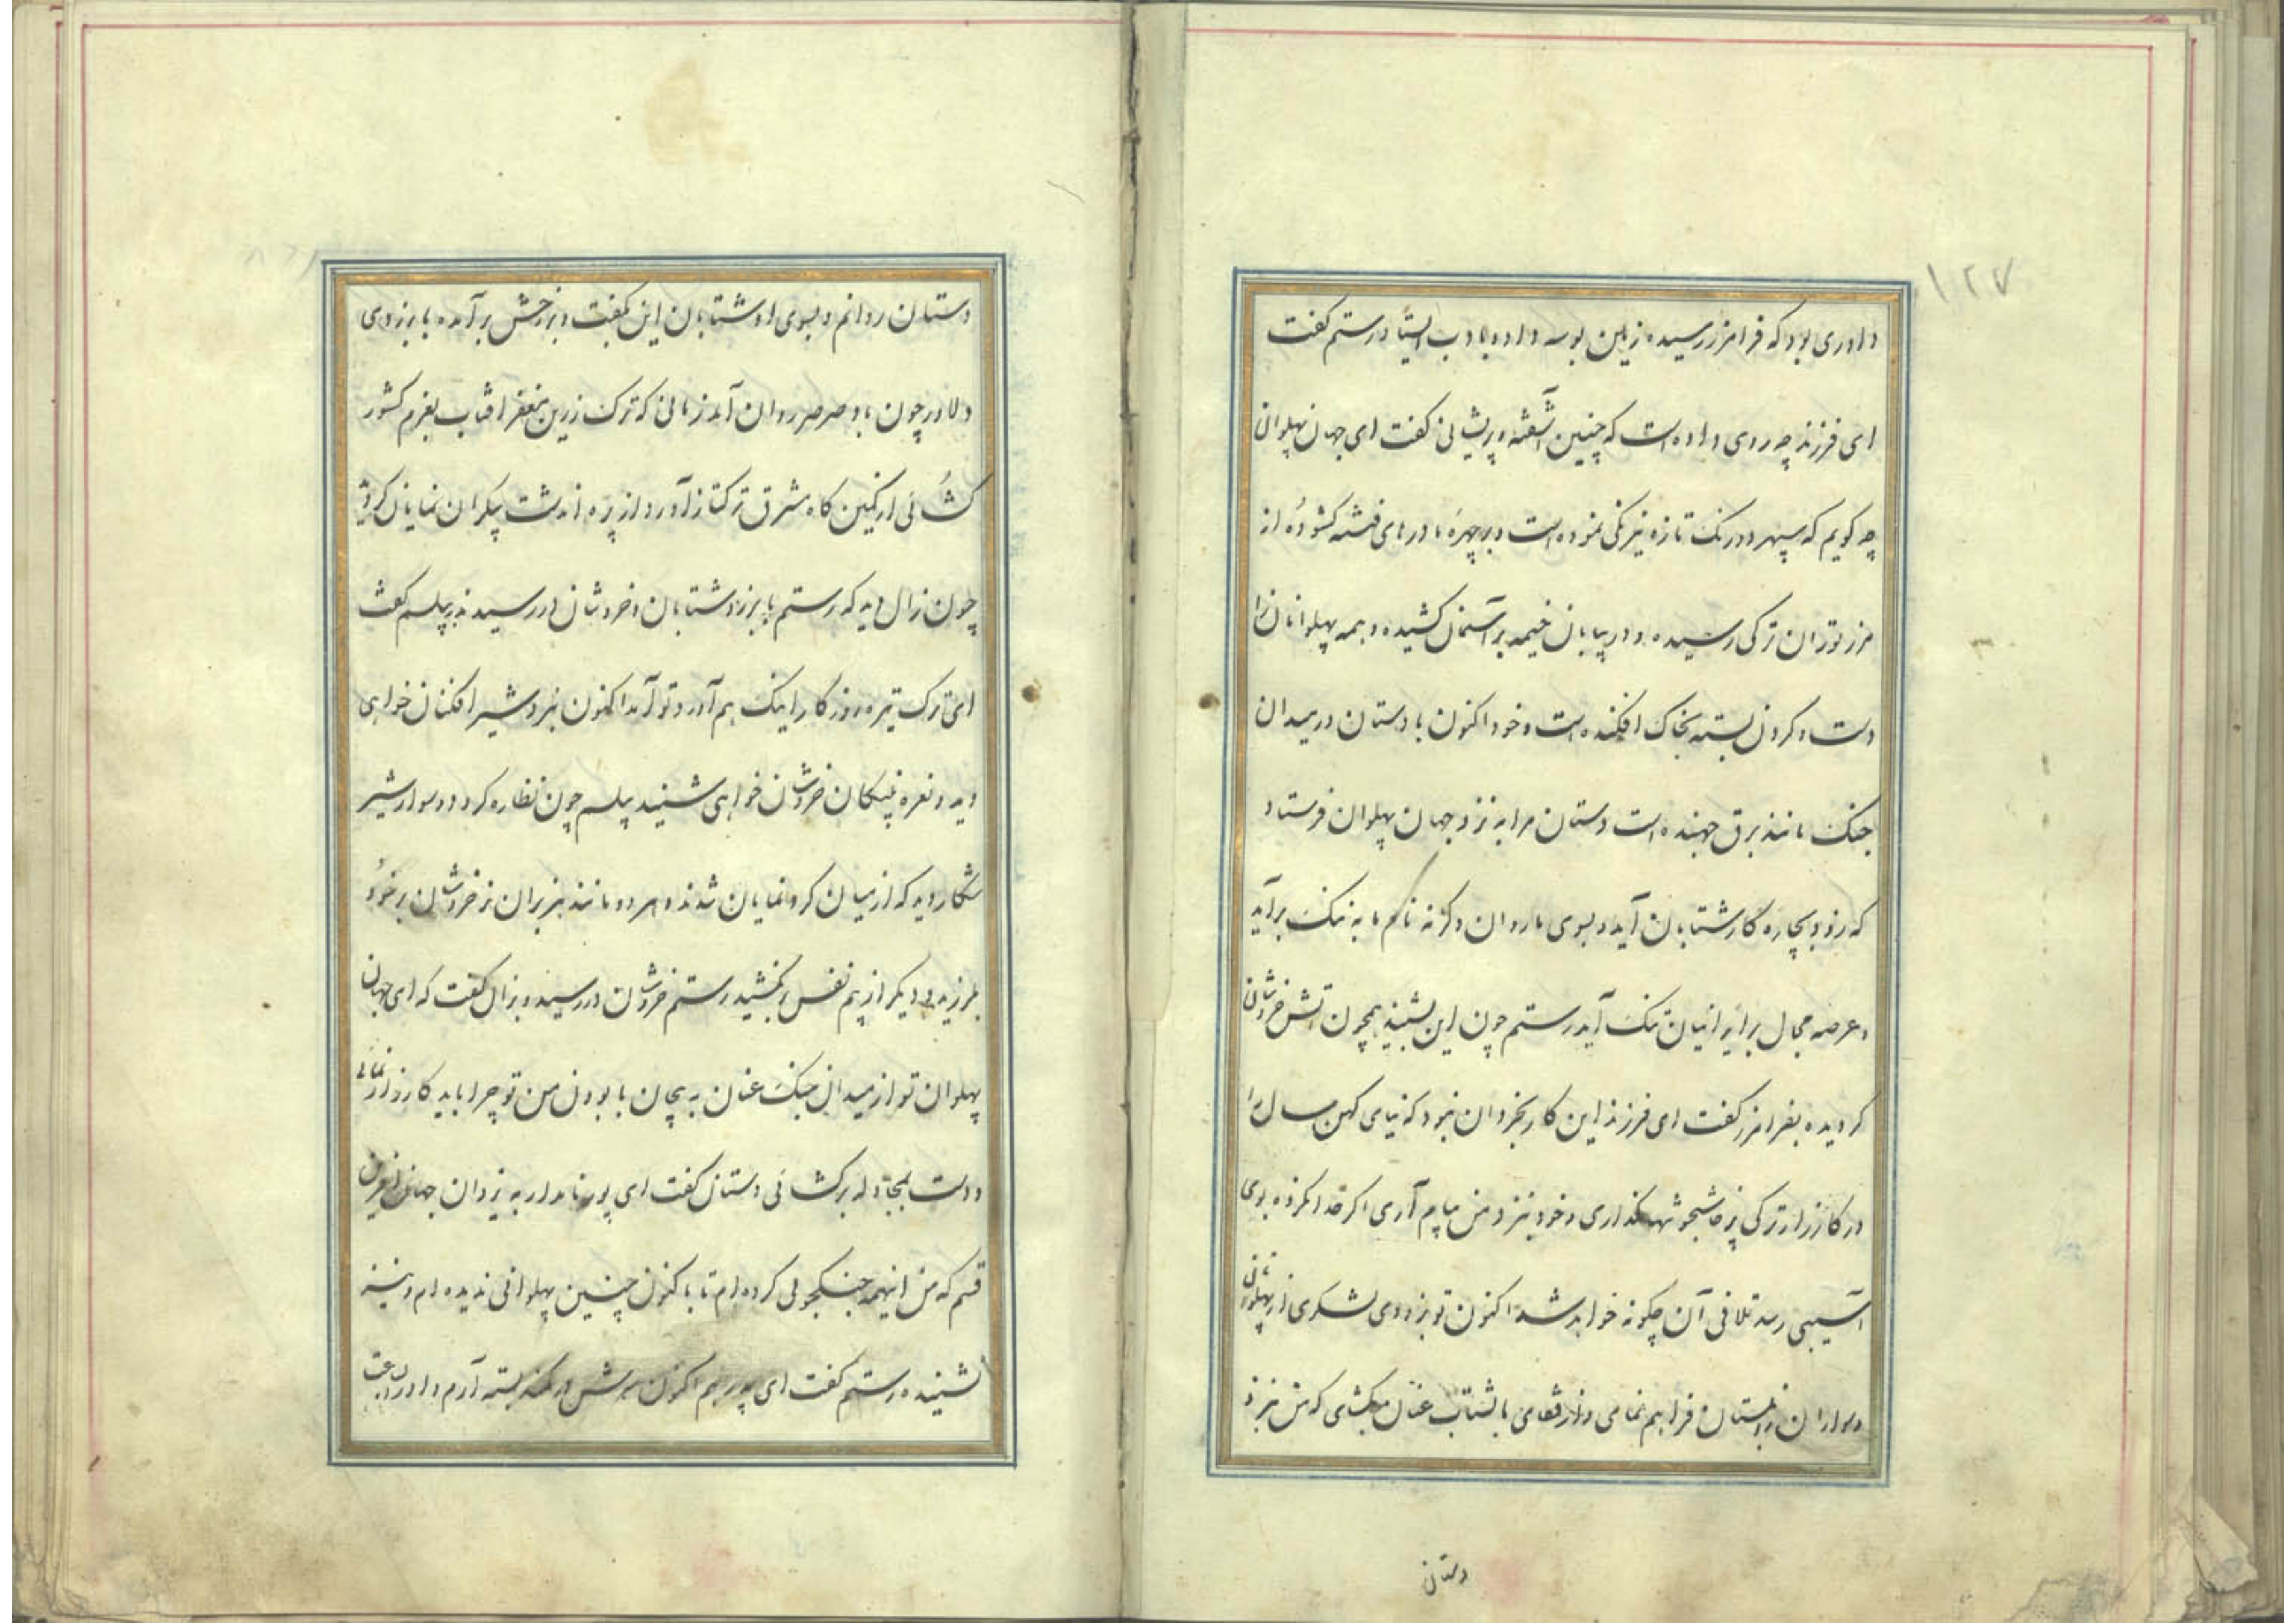 ۱۲۷
داوری بود که فرامرز رسیده زمین بوسه داده بادب ایستاد رستم کفت
ای فرزند چه روی داده است که چنین آشفته و پریشانی کفت ای جهان پهلوان
چه کویم که سپهر دورنک تازه نیرنکی نموده است و بر چهره ما درهای فتنه کشوده از
مرز توران ترکی رسیده و در بیابان خیمه بر آسمان کشیده و همه پهلوانان را
دست و کردن بسته بخاک افکنده است و خود اکنون با دستان در میدان
جنک مانند برق جهنده است دستان مرا به نزد جهان پهلوان فرستاد
که زود بچاره کار شتابان آید و بسوی ما روان وکرنه نام ما به ننک برآید
و عرصه مجال بر ایرانیان تنک آید رستم چون این بشنید همچون آتش خروشان
کردیده بفرامرز کفت ای فرزند این کار بخردان نبود که نیای کهن سال را
در کارزار ترکی پرخاشجو تنها بکذاری و خود بنزد من پیام آری اکر خدا نکرده بوی
آسیبی رسد تلافی آن چکونه خواهد شد اکنون تو بزودی لشکری از پهلوانان
و سواران زابلستان فراهم نمای و از قفای ما بشتاب عنان بکشای که من بنزد
دستان
دستان روانم و بسوی او شتابان این بکفت و بر رخش برآمده با برزوی
دلاور چون باد صرصر روان آمد زمانی که ترک زرین مغفر افتاب بعزم کشور
کشائی از کمین کاه مشرق ترکتاز آورد از پره دشت پیکران نمایان کردید
چون زال دید که رستم با برزو شتابان و خروشان در رسیدند به پیلسم کفت
ای ترک تیره روزکار اینک هم آورد تو آمد اکنون نبرد شیر افکنان خواهی
دید و نعره پلنکان خروشان خواهی شنید پیلسم چون نظاره کرد دو سوار شیر
شکار دید که از میان کرد نمایان شدند و هر دو مانند هزبران نر خروشان بر خود
بلرزید و دیکر از بیم نفس نکشید رستم خروشان در رسید و بزال کفت که ای جهان
پهلوان تو از میدان جنک عنان به پیچان با بودن من تو چرا باید کارزار نمائی
و دست بمجادله برکشائی دستان کفت ای پور نامدار به یزدان جهان آفرین
قسم که من اینهمه جنکجوئی کرده ام تا باکنون چنین پهلوانی ندیده ام و نیز
نشنیده رستم کفت ای پدر هم اکنون سرش در کمند بسته آرم